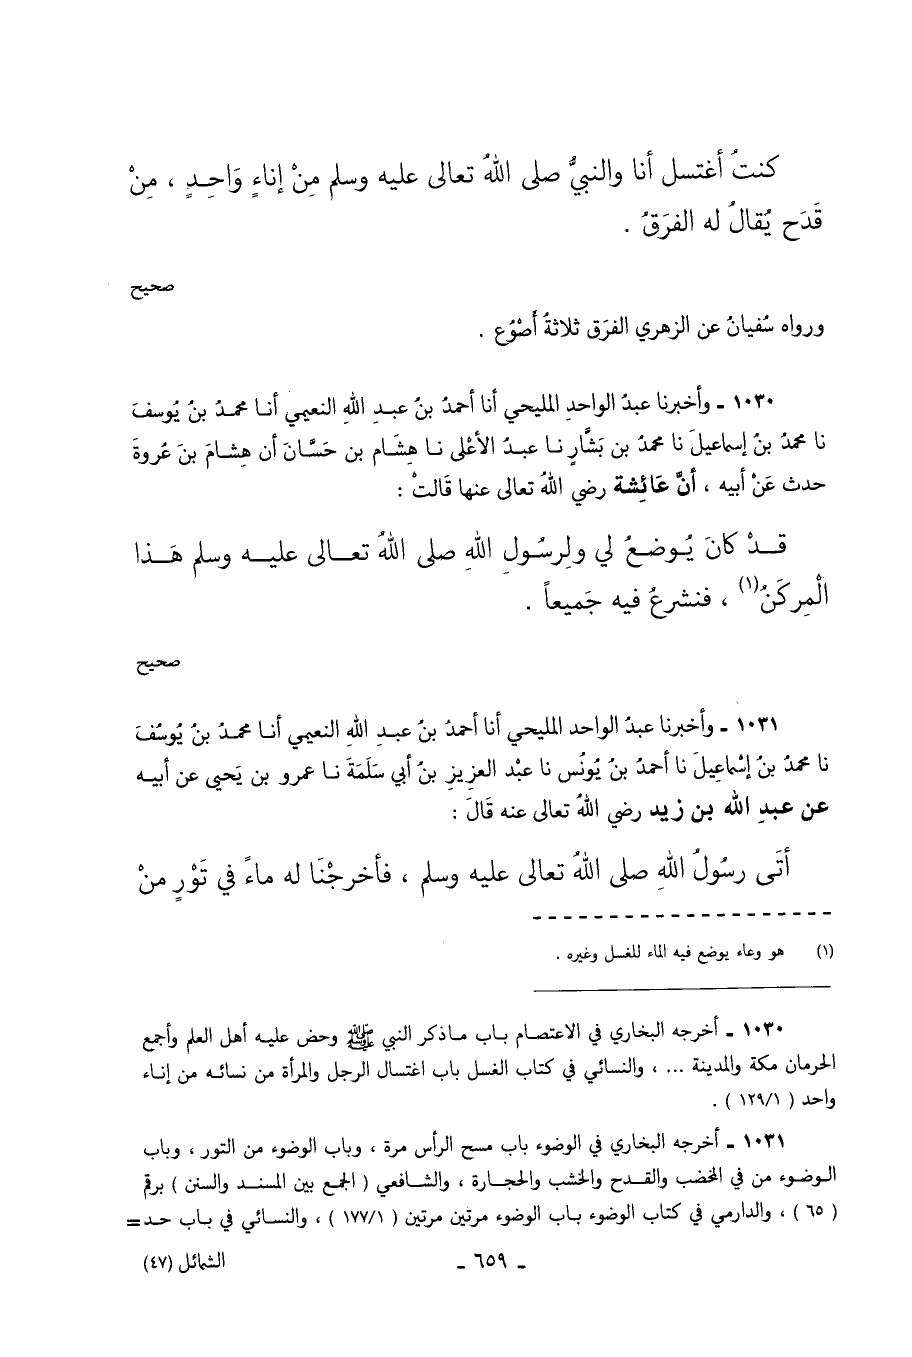 كنتُ أغتسل أنا والنبيُّ صلى اللهُ تعالى عليه وسلم مِنْ إناءٍ وَاحِدٍ ، مِنْ
قَدَح يُقالُ له الفرَقُ .
صحيح
ورواه سُفيانُ عن الزهري الفرَق ثلاثةُ أَصْوُع .
١٠٣٠ ـ وأخبرنا عبدُ الواحدِ المليحي أنا أحمدُ بنُ عبدِ اللهِ النعيمي أنا محمدُ بنُ يُوسفَ
نا محمدُ بنُ إسماعيلَ نا محمدُ بن بَشَّارٍ نا عبدُ الأعْلى نا هِشَام بن حَسَّانَ أن هِشامَ بنَ عُروةَ
حدث عَنْ أبيه ، أنَّ عَائِشة رضي اللهُ تعالى عنها قَالتْ :
قدْ كانَ يُوضعُ لي ولِرسُولِ اللهِ صلى اللهُ تعالى عليه وسلم هَذا
الْمِركَنُ(١) ، فنشرعُ فيه جَميعاً .
صحيح
١٠٣١ ـ وأخبرنا عبدُ الواحد المليحي أنا أحمدُ بنُ عبدِ اللهِ النعيمي أنا محمدُ بنُ يُوسُفَ
نا محمدُ بنُ إسْماعِيلَ نا أحمدُ بنُ يُونُس نا عبْد العزِيزِ بنُ أبي سَلَمَةَ نا عمرو بن يَحيى عن أبيه
عن عبدِ الله بن زيد رضي اللهُ تعالى عنه قَالَ :
أتَى رسُولُ اللهِ صلى اللهُ تعالى عليه وسلم ، فأخرجْنَا له ماءً في تَوْرٍ منْ
(١) هو وعاء يوضع فيه الماء للغسل وغيره .
١٠٣٠ ـ أخرجه البخاري في الاعتصام باب ماذكر النبي ﷺ وحض عليه أهل العلم وأجمع
الحرمان مكة والمدينة ... ، والنسائي في كتاب الغسل باب اغتسال الرجل والمرأة من نسائه من إناء
واحد ( ١٢٩/١ ) .
١٠٣١ ـ أخرجه البخاري في الوضوء باب مسح الرأس مرة ، وباب الوضوء من التور ، وباب
الوضوء من في المخضب والقدح والخشب والحجارة ، والشافعي ( الجمع بين المسند والسنن ) برقم
( ٦٥ ) ، والدارمي في كتاب الوضوء باب الوضوء مرتين مرتين ( ١٧٧/١ ) ، والنسائي في باب حد=
ـ ٦٥٩ ـ
الشمائل (٤٧)